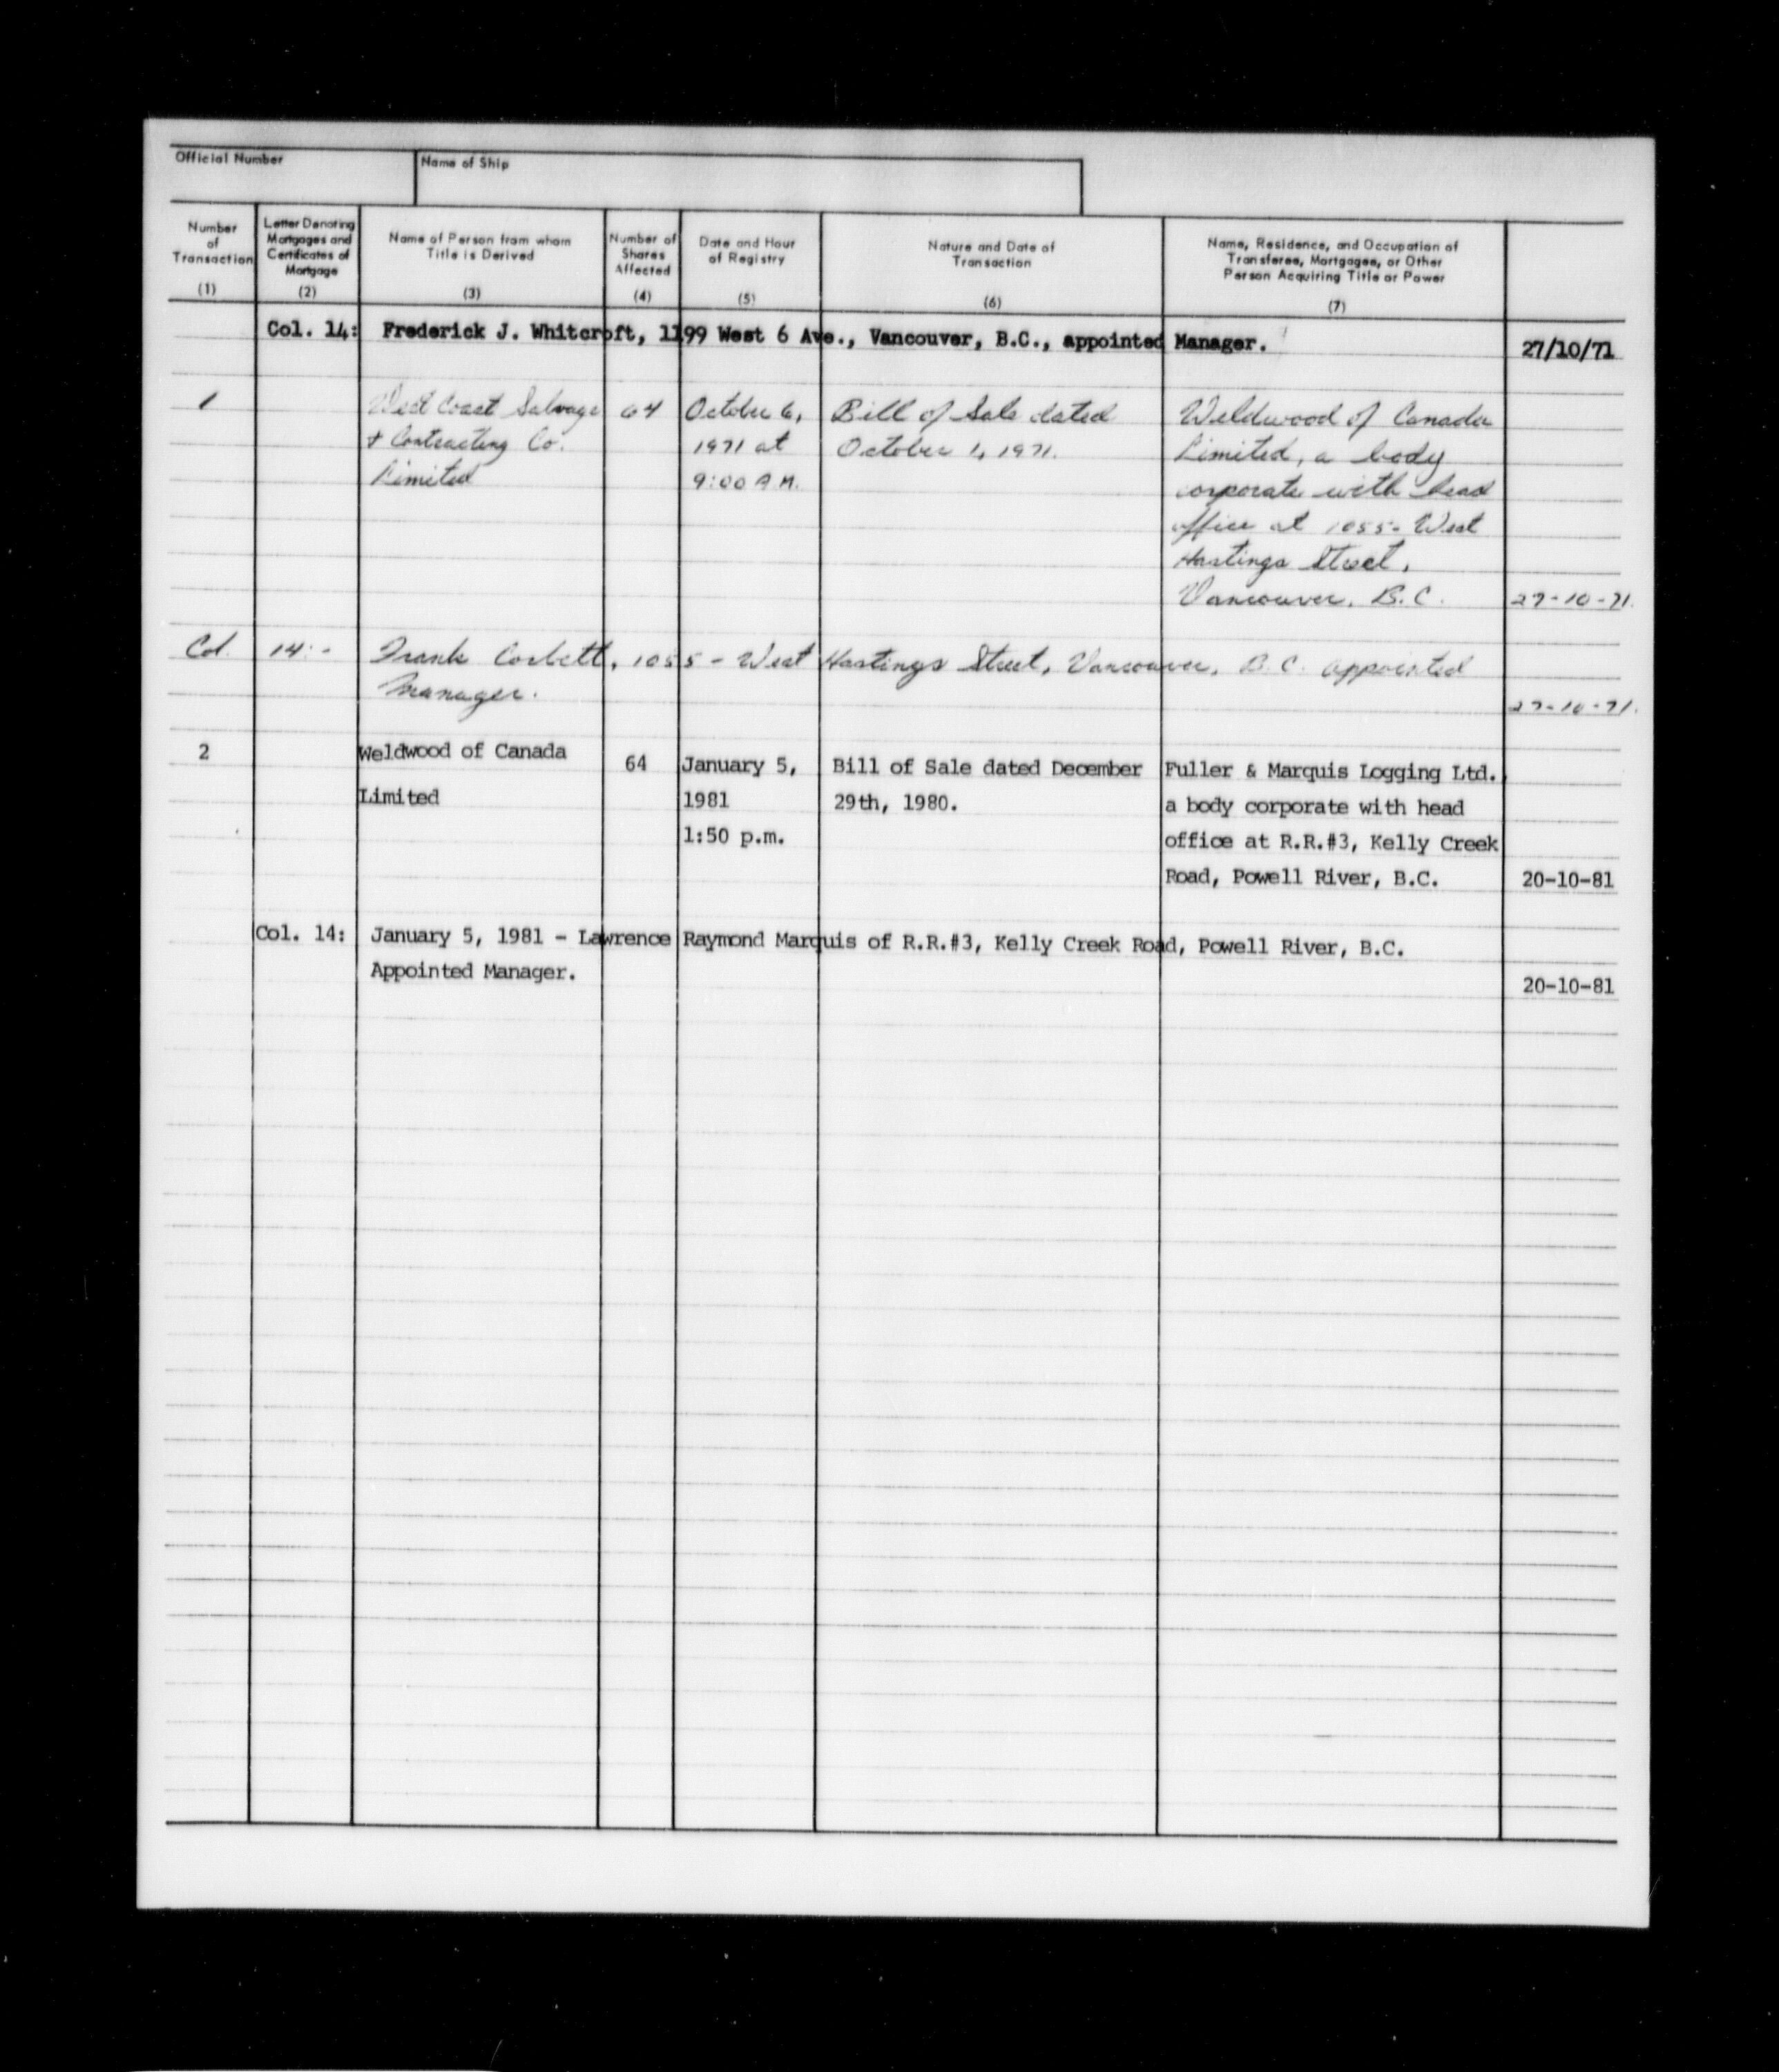 Official Number
Name of Ship
Number of Transaction (1)
Letter Denoting Mortgages and Certificates of Mortgage (2)
Name of Person from whom Title is Derived (3)
Number of Shares Affected (4)
Date and Hour of Registry (5)
Nature and Date of Transaction (6)
Name, Residence, and Occupation of Transferee, Mortgagee, or Other Person Acquiring Title or Power (7)
Col. 14: Frederick J. Whitcroft, 1199 West 6 Ave., Vancouver, B.C., appointed Manager. 27/10/71
1 West Coast Salvage 64 October 6, Bill of Sale dated Weldwood of Canada
& Contracting Co. 1971 at October 1, 1971. Limited, a body
Limited 9:00 A.M. corporate with head
office at 1055- West
Hastings Street,
Vancouver, B.C. 27-10-71.
Col. 14:- Frank Corbett, 1055 - West Hastings Street, Vancouver, B.C. appointed
Manager. 27-10-71.
2 Weldwood of Canada 64 January 5, Bill of Sale dated December Fuller & Marquis Logging Ltd.
Limited 1981 29th, 1980. a body corporate with head
1:50 p.m. office at R.R.#3, Kelly Creek
Road, Powell River, B.C. 20-10-81
Col. 14: January 5, 1981 - Lawrence Raymond Marquis of R.R.#3, Kelly Creek Road, Powell River, B.C.
Appointed Manager. 20-10-81